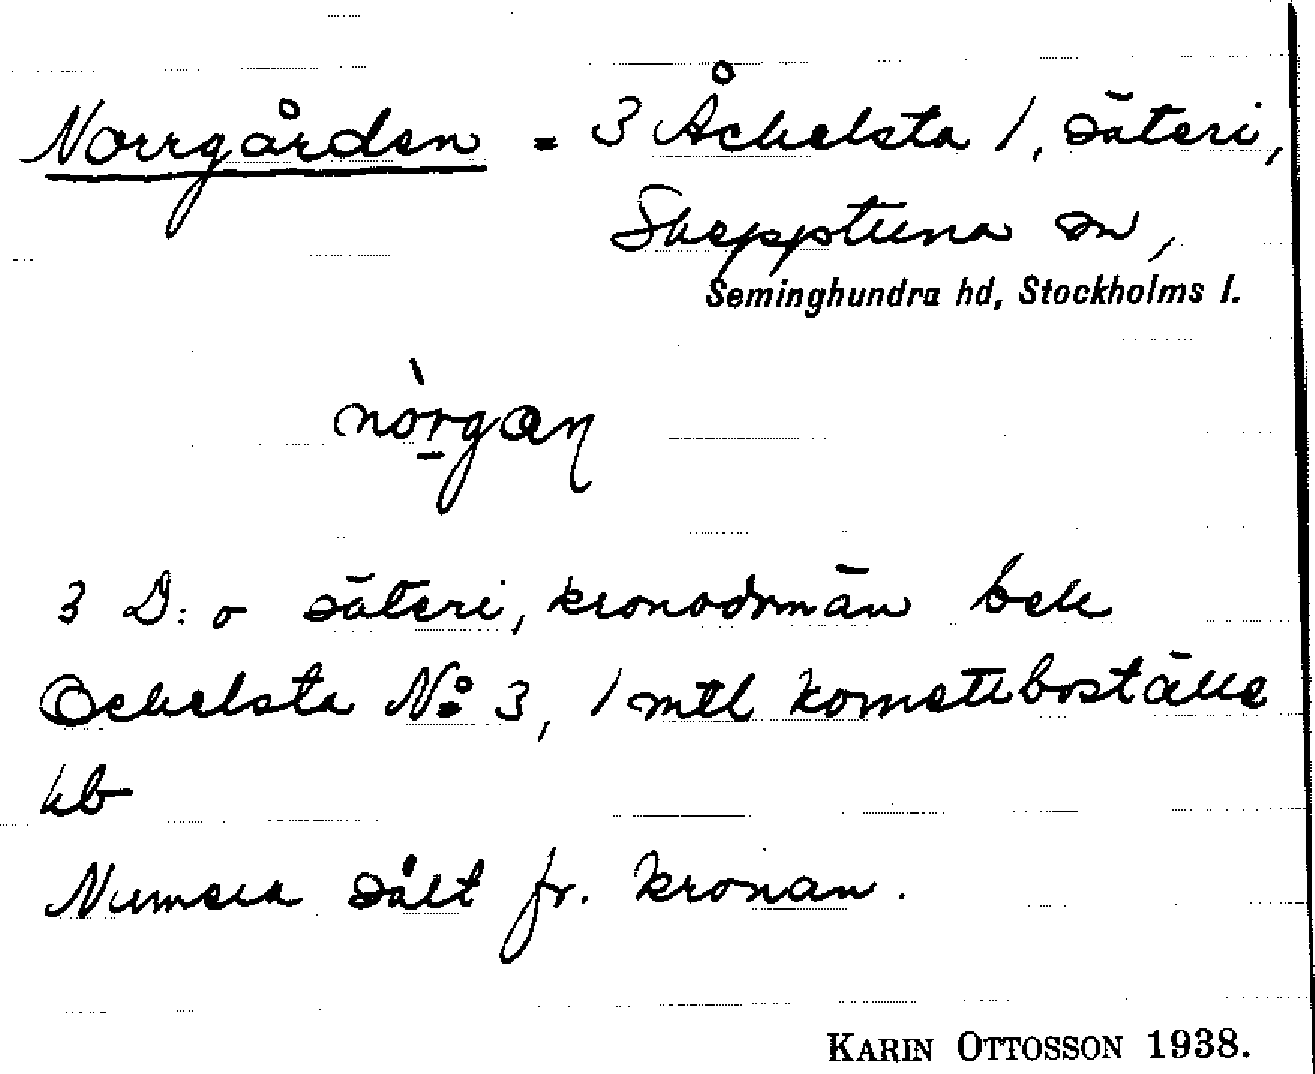 Norrgården = 3 Åckelsta 1, säteri,
Skepptuna sn,
Seminghundra hd, Stockholms l.
nòrgan
3 D:o säteri, kronodomän bek
Ockelsta No 3, 1 mtl kornettboställe
kb
Numera sålt fr. kronan.
KARIN OTTOSSON 1938.